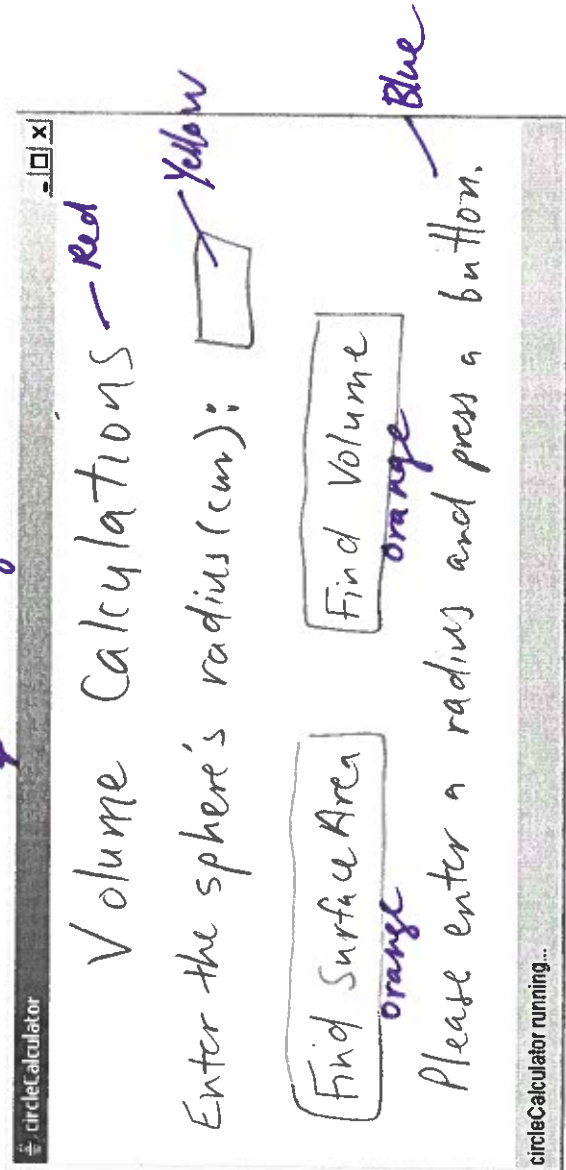 circleCalculator
Volume Calculations - Red
Enter the sphere's radius (cm): Yellow
Find Surface Area Find Volume
Orange Orange
Please enter a radius and press a button. Blue
circleCalculator running...